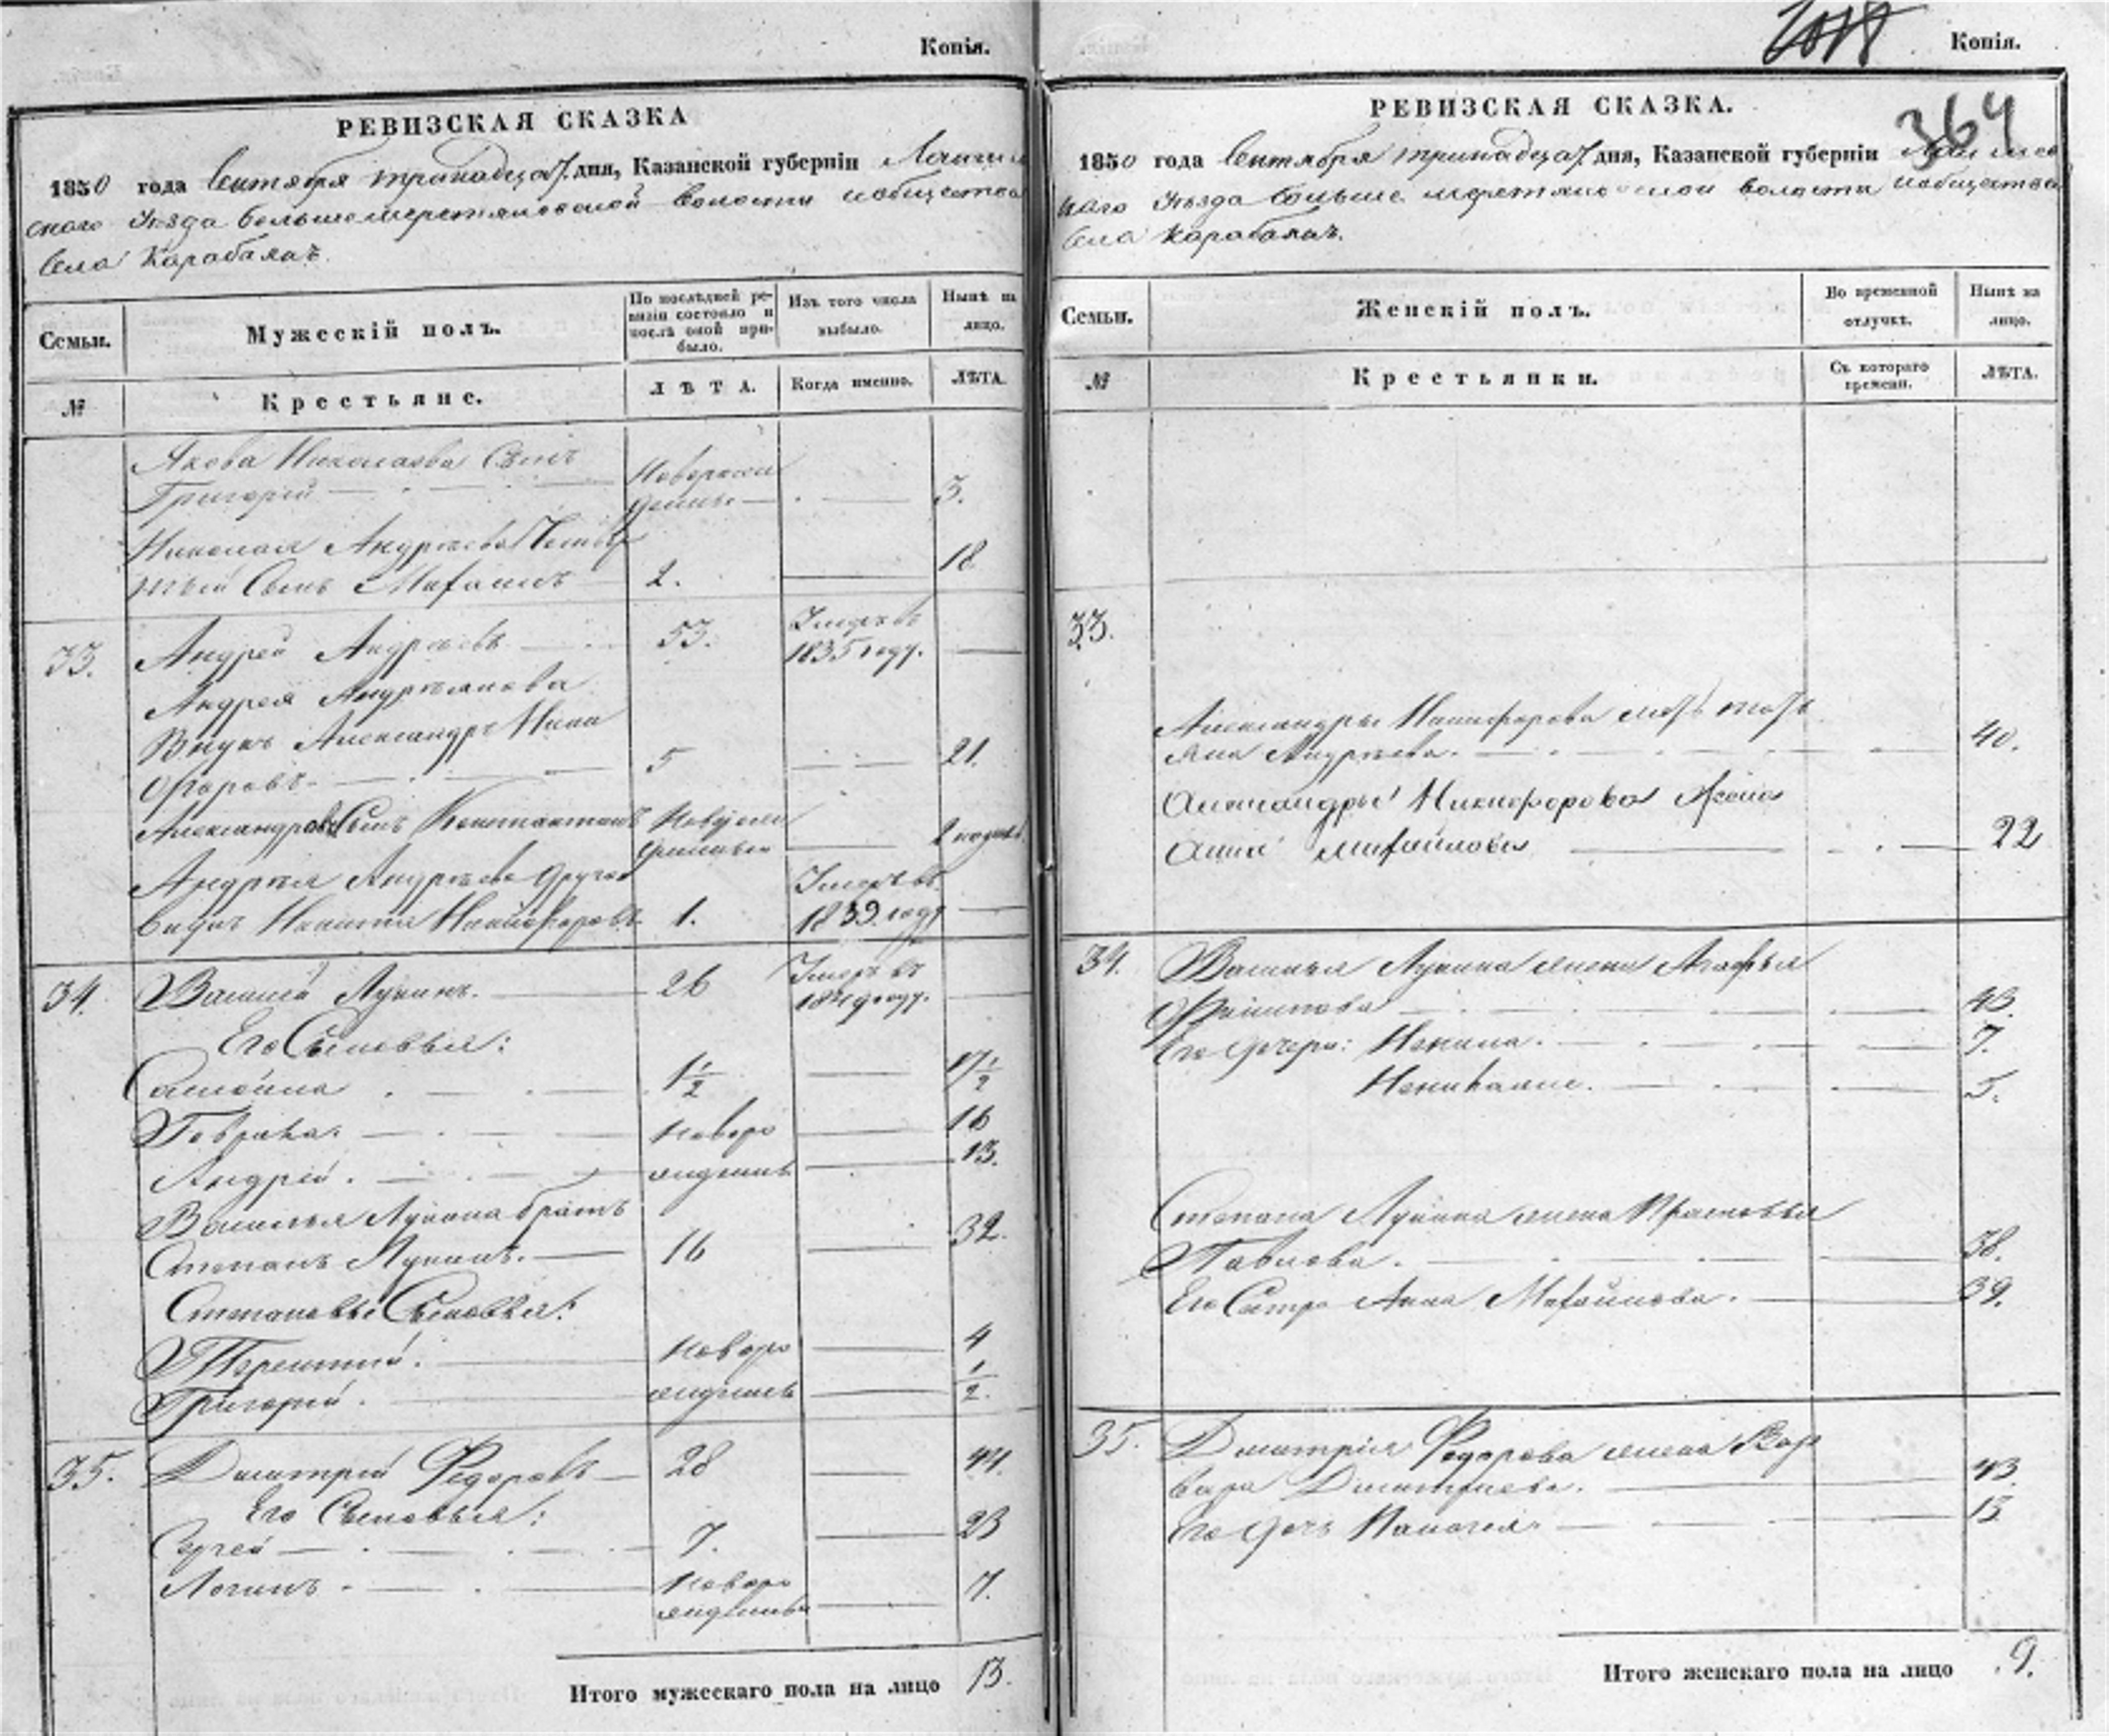 Копія.
РЕВИЗСКАЯ СКАЗКА
1850 года Сентября тринадцат. дня, Казанской губерніи Лаише
скаго Уѣзда Большемеретяковской волости общества
Села Карабаяхъ.
Семьи.
Мужескій полъ.
По послѣдней ре-
визіи состояло и
послѣ оной при-
было.
Изъ того числа
выбыло.
Нынѣ на
лицо.
№
Крестьяне.
ЛѢТА.
Когда именно.
ЛѢТА.
Якова Николаева Сынъ
Григорей Новорож
денъ 3.
Николая Андреева
Сынъ 2. 18
33. Андрей Андреевъ 53. Умеръ въ
1835 году.
Андрея
Внукъ Александръ Ники
форовъ 5 21.
Александровъ Сынъ Константинъ
Андрея Андреева другой Умеръ въ
внукъ Никита Никифоровъ 1. 1839 году
34. Василей Лукинъ. 26 Умеръ въ
1849 году.
Его Сыновья:
Самойла 1½ 17½
Гаврила. Новоро 16
Андрей. жденые 13.
Василья Лукина братъ
Степанъ Лукинъ. 16 32.
Степановы Сыновья:
Терентий. Новоро 4
Григорей. жденые ½.
35. Дмитрей Федоровъ 28 44.
Его Сыновья:
Сергей 7. 23
Логинъ Новоро
жденые 7.
Итого мужескаго пола на лицо 13.
Копія.
364
РЕВИЗСКАЯ СКАЗКА.
1850 года Сентября тринадцат. дня, Казанской губерніи Лаише
скаго Уѣзда Больше меретяковской волости общества
Села Карабаяхъ.
Семьи.
Женскій полъ.
Во временной
отлучкѣ.
Нынѣ на
лицо.
№
Крестьянки.
Съ котораго
времени.
ЛѢТА.
33.
Александры Никифорова мать
Андреева. 40.
Александры Никифорова Жена
Анна Михайлова 22
34. Василья Лукина жена Агафья
Филипова 43.
Его дочери: Ненила. 7.
5.
Степана Лукина жена Прасковья
Павлова. 38.
Его Сестра Анна Михайлова. 39.
35. Дмитрия Федорова жена Вар
вара Дмитриева. 43
Его дочь Пелагея 13
Итого женскаго пола на лицо 9.